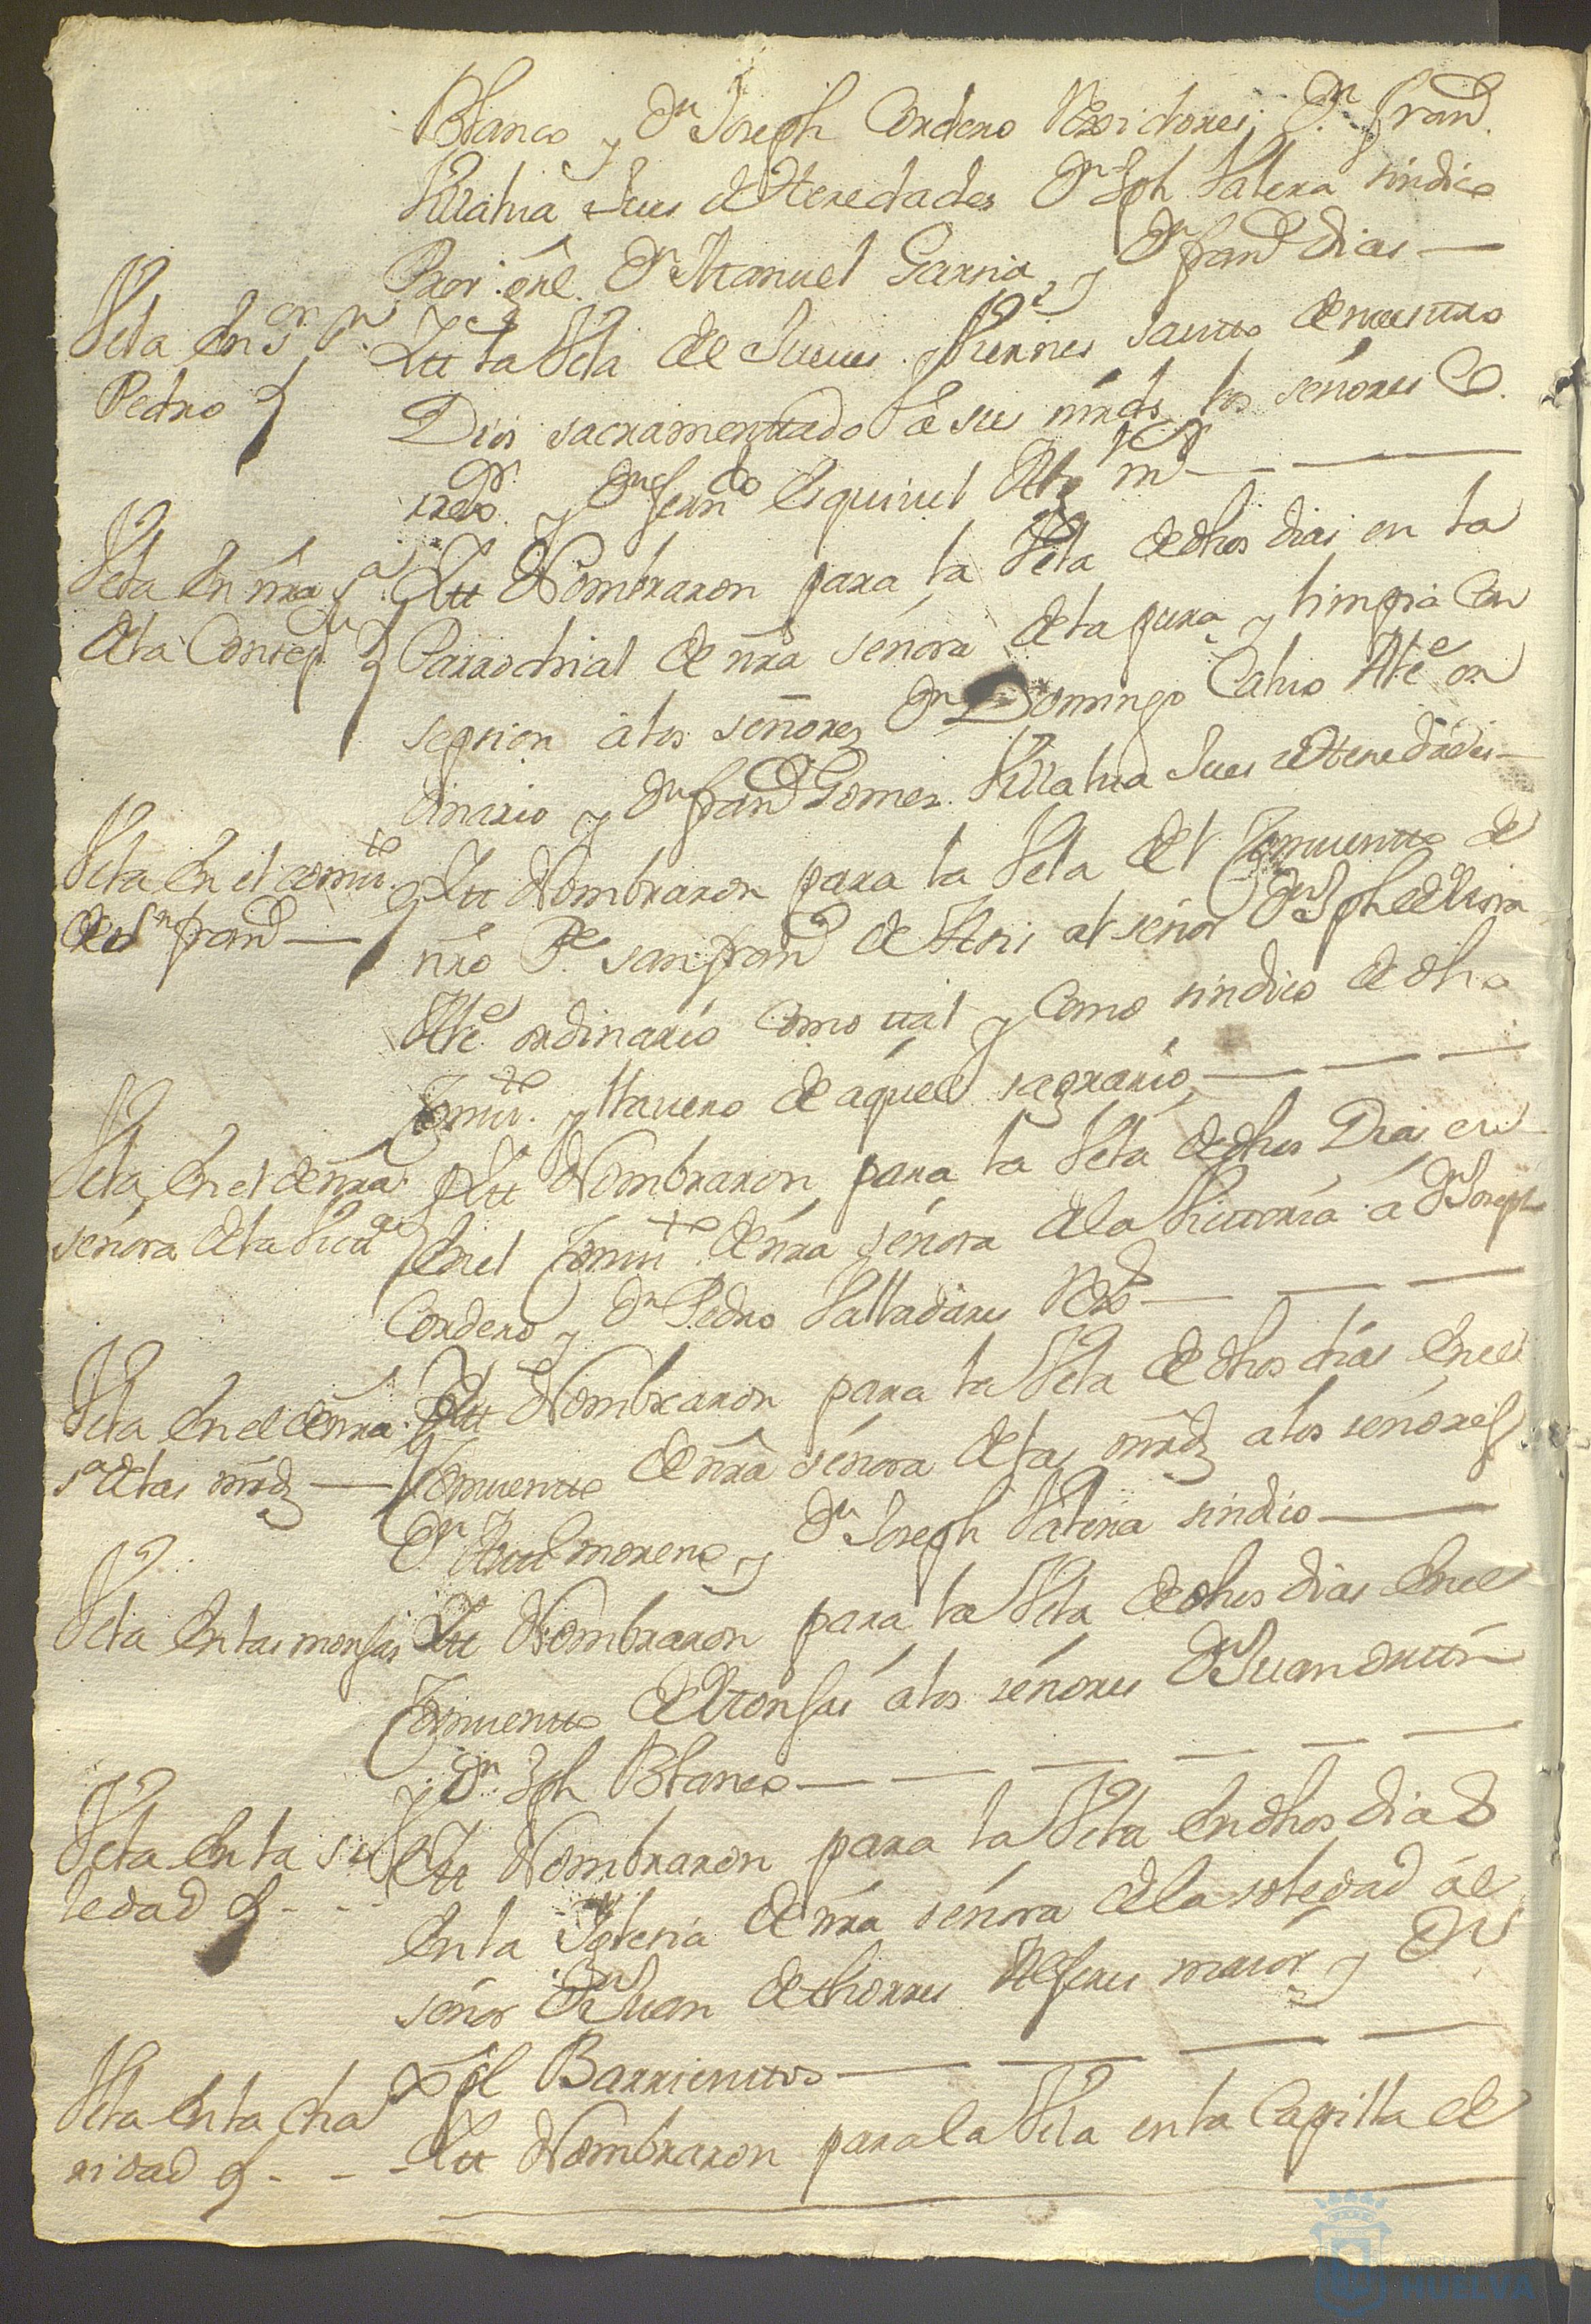 Blanco y Dn Joseph Cordero Rexidores, Dn Franco
Villalua Jues de Heredades Dn Jph Valera sindico
Pror. gral. Dn Manuel Garsia, y Dn Franco Dias —
Vela en Sn
Pedro
Itt la Vela de Jueues y Viernes santo de nuestro
Dios sacramentado â sus mrds los señores Co
rredor. y Dn Ferndo Esquiuel Algl mr — —
Vela en nra Sa
de la Consepn
Itt Nombraron para la Vela de dhos dias en la
Parrochial de nra señora de la pura y limpia Con
sepsion â los señores Dn Domingo Caluo Alce or
dinario y Dn Franco Gomez Villalua Jues de Heredades —
Vela en el conuto
de Sn Franco —
Itt Nombraron para la Vela del Conuento de
nro Pe san Franco de Asis al señor Dn Jph de Lira
Alce ordinario como tal y como sindico de dho
Conuto. y llauero de aquel sagrario — — —
Vela en el de nra
señora de la Victa
Itt Nombraron para la Vela de dhos Dias en
en el Conuto de nra señora de la Victtoria â Dn Joseph
Cordero y Dn Pedro Valladares Rexs — — —
Vela en el de nra
sa de las mrds —
Itt Nombraron para la Vela de dhos dias en el
Conuento de nra señora de las mrds a los señores
Dn moreno y Dn Joseph Valera sindico —
Vela en las monjas
Itt Nombraron para la Vela de dhos dias en el
Conuento de Monjas â los señores Dn Juan
y Dn Jph Blanco — — — — — —
Vela en la so
ledad - - -
Itt Nombraron para la Vela en dhos dias
en la Iglesia de nra señora de la soledad âl
señor Dn Juan de thorres Alferes maior y Dn
Xptl Barrientos — — — —
Vela en la cha
ridad - - -
Itt Nombraron para la Vela en la Capilla de
HUELVA